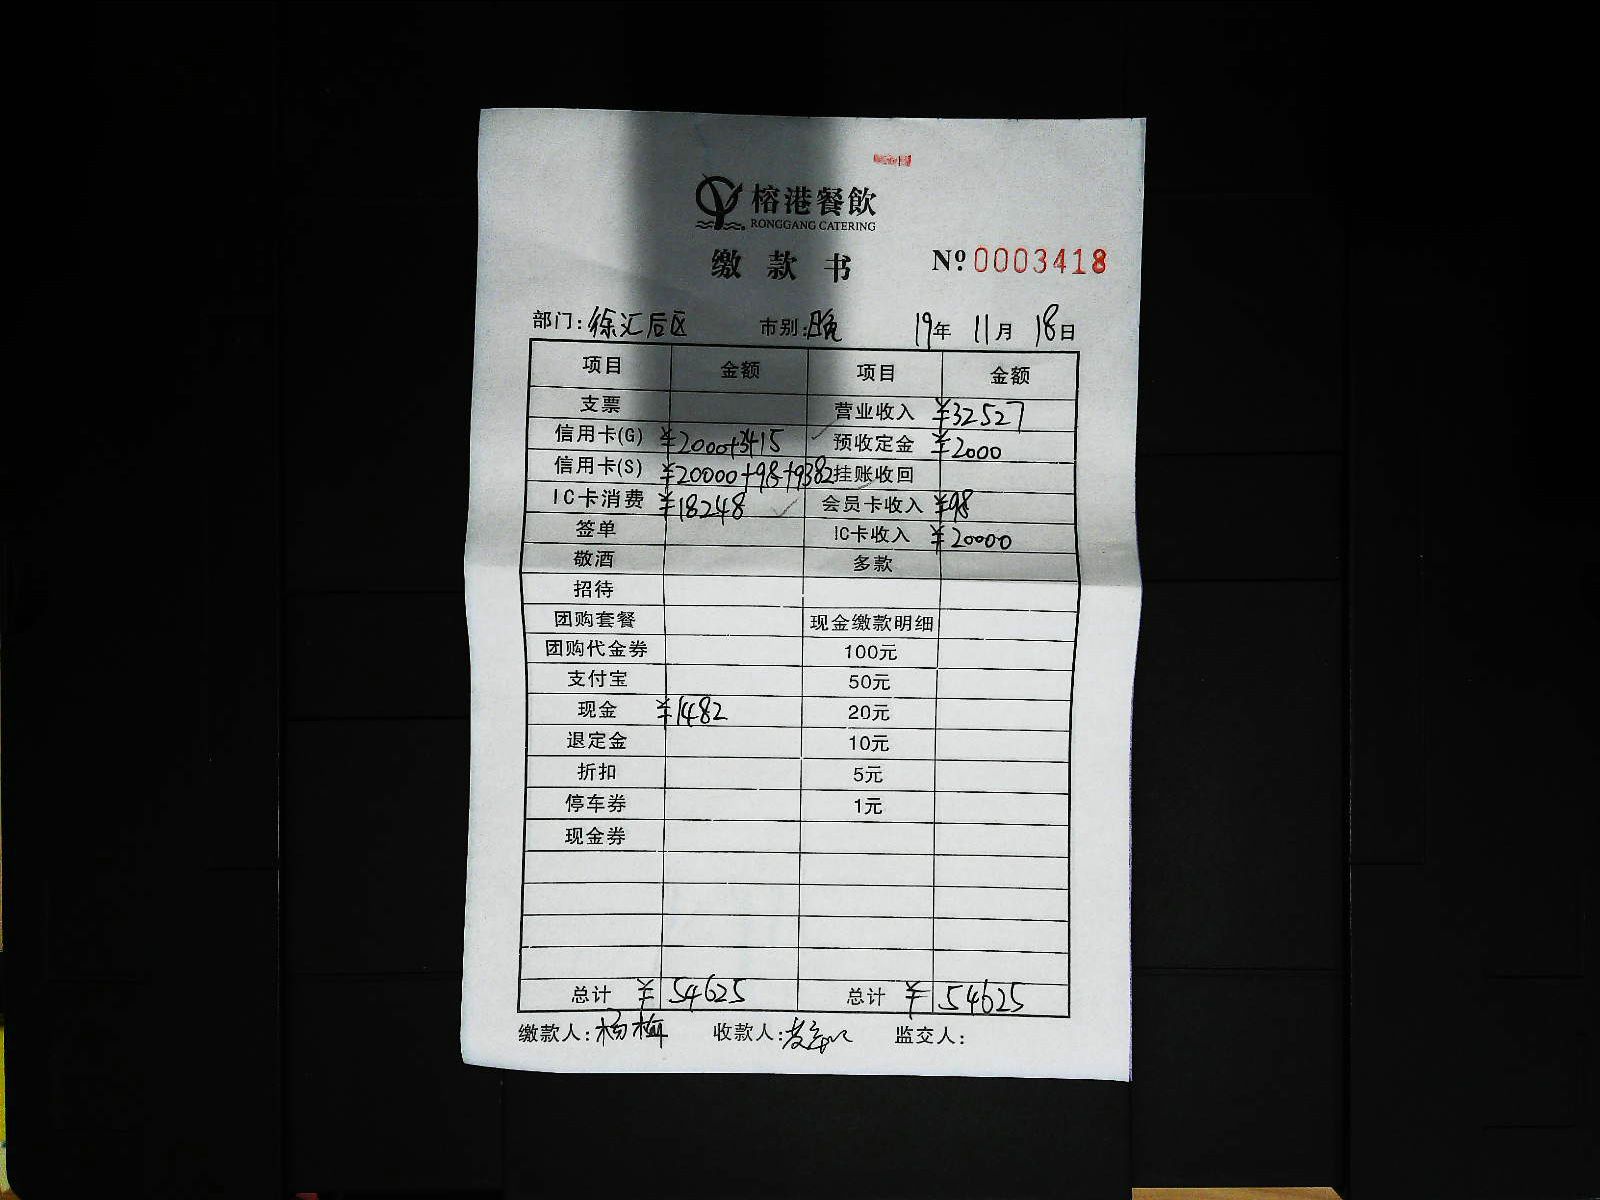 榕港餐飲
RONGGANG CATERING
缴款书 Nº 0003418
部门: 徐汇后区 市别: 晚 19年 11月 18日
项目 金额 项目 金额
支票 营业收入 ¥32527
信用卡(G) ¥2000+3415 预收定金 ¥2000
信用卡(S) ¥20000+98+9382 挂账收回
IC卡消费 ¥18248 会员卡收入 ¥98
签单 IC卡收入 ¥20000
敬酒 多款
招待
团购套餐 现金缴款明细
团购代金券 100元
支付宝 50元
现金 ¥1482 20元
退定金 10元
折扣 5元
停车券 1元
现金券
总计 ¥54625 总计 ¥54625
缴款人: 杨梅 收款人: 监交人: